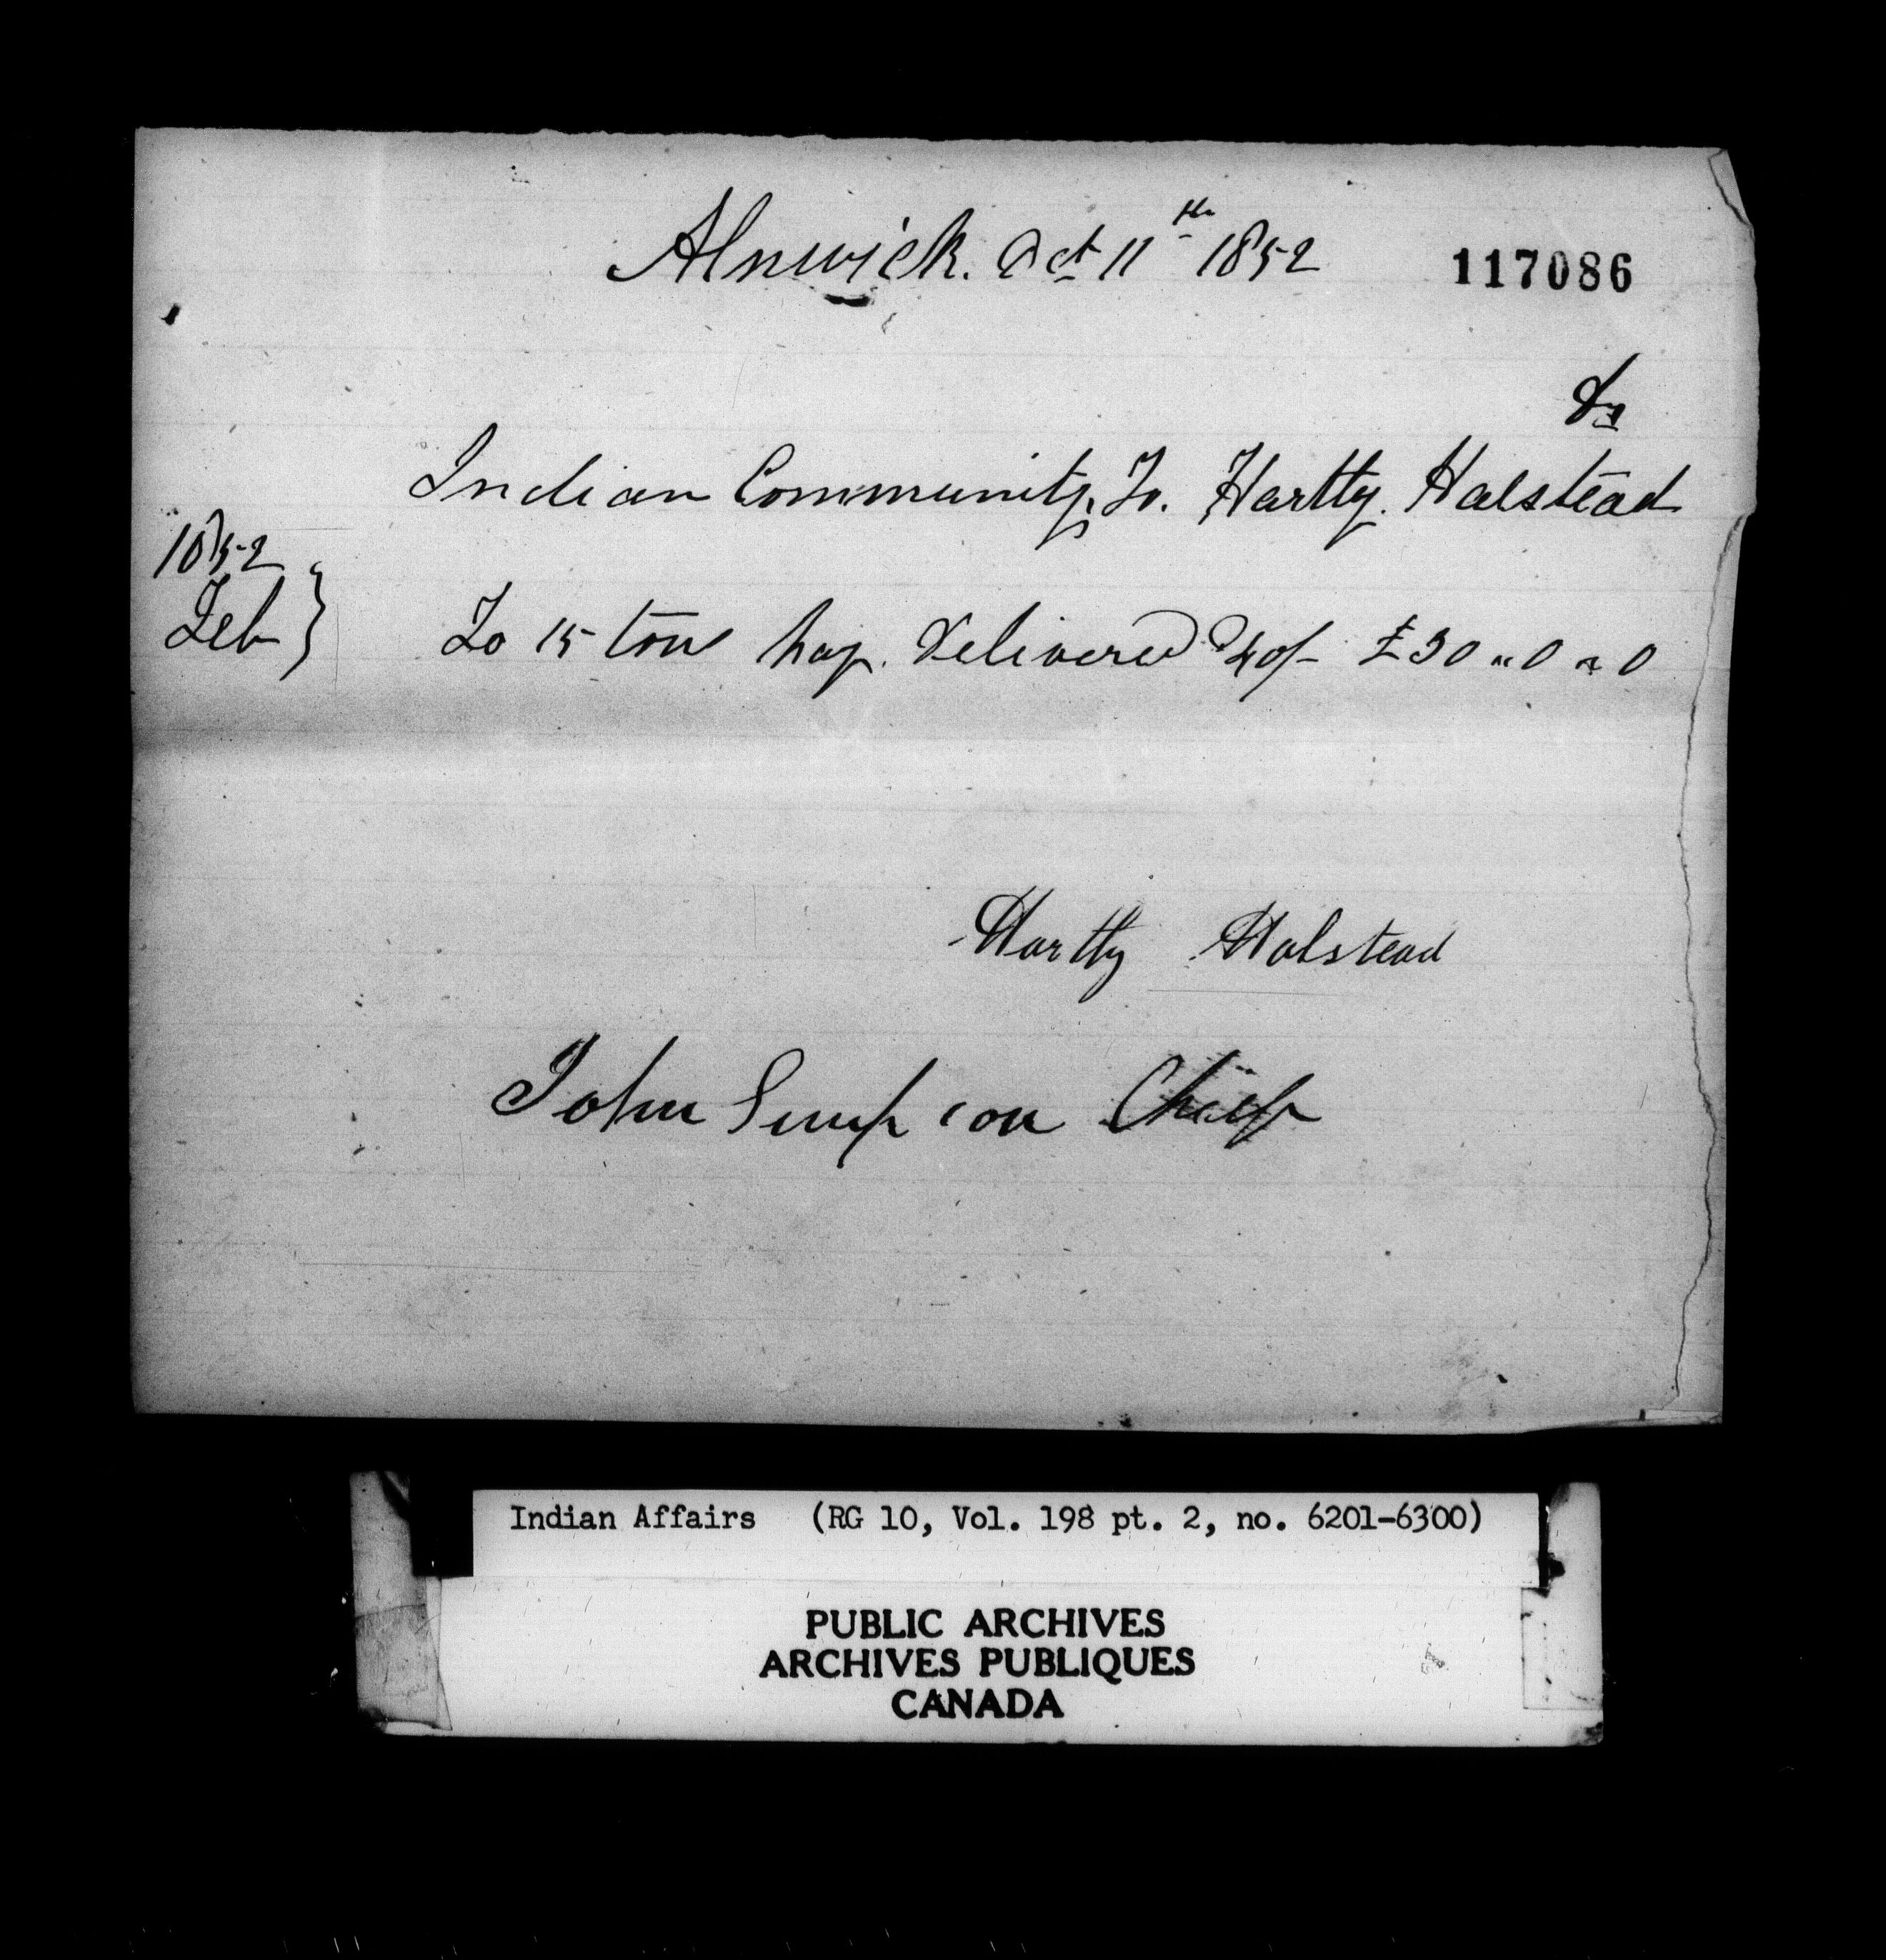 Alnwick. Oct 11th 1852
117086
Dr
Indian Community, To. Hartly. Halstead
1852
Feb }
To 15 ton hay. delivered 40/- £30 " 0 " 0
Hartly Halstead
John Simpson Chief
Indian Affairs (RG 10, Vol. 198 pt. 2, no. 6201-6300)
PUBLIC ARCHIVES
ARCHIVES PUBLIQUES
CANADA